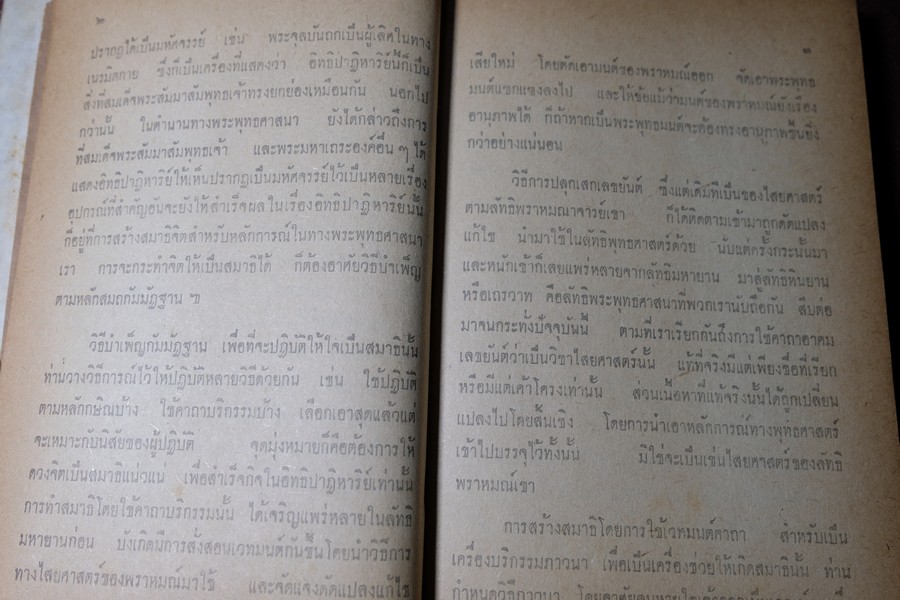 ๒
ปรากฏได้เป็นมหัศจรรย์ เช่น พระจุลบันถกเป็นผู้เลิศในทาง
เนรมิตกาย ซึ่งก็เป็นเครื่องที่แสดงว่า อิทธิปาฏิหาริย์นี้ก็เป็น
สิ่งที่สมเด็จพระสัมมาสัมพุทธเจ้าทรงยกย่องเหมือนกัน นอกไป
กว่านั้น ในตำนานทางพระพุทธศาสนา ยังได้กล่าวถึงการ
ที่สมเด็จพระสัมมาสัมพุทธเจ้า และพระมหาเถระองค์อื่น ๆ ได้
แสดงอิทธิปาฏิหาริย์ให้เห็นปรากฏเป็นมหัศจรรย์ไว้เป็นหลายเรื่อง
อุปกรณ์ที่สำคัญอันจะยังให้สำเร็จผลในเรื่องอิทธิปาฏิหาริย์นั้น
ก็อยู่ที่การสร้างสมาธิจิตสำหรับหลักการณ์ในทางพระพุทธศาสนา
เรา การจะกระทำจิตให้เป็นสมาธิได้ ก็ต้องอาศัยวิธีบำเพ็ญ
ตามหลักสมถกัมมัฏฐาน ฯ
วิธีบำเพ็ญกัมมัฏฐาน เพื่อที่จะปฏิบัติให้ใจเป็นสมาธินั้น
ท่านวางวิธีการณ์ไว้ให้ปฏิบัติหลายวิธีด้วยกัน เช่น ใช้ปฏิบัติ
ตามหลักกษิณบ้าง ใช้คาถาบริกรรมบ้าง เลือกเอาสุดแล้วแต่
จะเหมาะกับนิสัยของผู้ปฏิบัติ จุดมุ่งหมายก็คือต้องการให้
ดวงจิตเป็นสมาธิแน่วแน่ เพื่อสำเร็จกิจในอิทธิปาฏิหาริย์เท่านั้น
การทำสมาธิโดยใช้คาถาบริกรรมนั้น ได้เจริญแพร่หลายในลัทธิ
มหายานก่อน บังเกิดมีการสั่งสอนเวทมนต์กันขึ้นโดยนำวิธีการ
ทางไสยศาสตร์ของพราหมณ์มาใช้ และจัดแจงดัดแปลงแก้ไข
๓
เสียใหม่ โดยตัดเอามนต์ของพราหมณ์ออก จัดเอาพระพุทธ
มนต์แซกแซงลงไป และให้ข้อแม้ว่ามนต์ของพราหมณ์ยังเรื่อง
อานุภาพได้ ก็ถ้าหากเป็นพระพุทธมนต์จะต้องทรงอานุภาพขึ้นยิ่ง
กว่าอย่างแน่นอน
วิธีการปลุกเสกเลขยันต์ ซึ่งแต่เดิมทีเป็นของไสยศาสตร์
ตามลัทธิพราหมณาจารย์เขา ก็ได้ติดตามเข้ามาถูกดัดแปลง
แก้ไข นำมาใช้ในลัทธิพุทธศาสตร์ด้วย นับแต่ครั้งกระนั้นมา
และหนักเข้าก็เลยแพร่หลายจากลัทธิมหายาน มาสู่ลัทธิหินยาน
หรือเถรวาท คือลัทธิพระพุทธศาสนาที่พวกเรานับถือกัน สืบต่อ
มาจนกระทั่งปัจจุบันนี้ ตามที่เราเรียกกันถึงการใช้คาถาอาคม
เลขยันต์ว่าเป็นวิชาไสยศาสตร์นั้น แท้ที่จริงมีแต่เพียงชื่อที่เรียก
หรือมีแต่เค้าโครงเท่านั้น ส่วนเนื้อหาที่แท้จริงนั้นได้ถูกเปลี่ยน
แปลงไปโดยสิ้นเชิง โดยการนำเอาหลักการณ์ทางพุทธศาสตร์
เข้าไปบรรจุไว้ทั้งนั้น มิใช่จะเป็นเช่นไสยศาสตร์ของลัทธิ
พราหมณ์เขา
การสร้างสมาธิโดยการใช้เวทมนต์คาถา สำหรับเป็น
เครื่องบริกรรมภาวนา เพื่อเป็นเครื่องช่วยให้เกิดสมาธินั้น ท่าน
กำหนดวิธีภาวนา